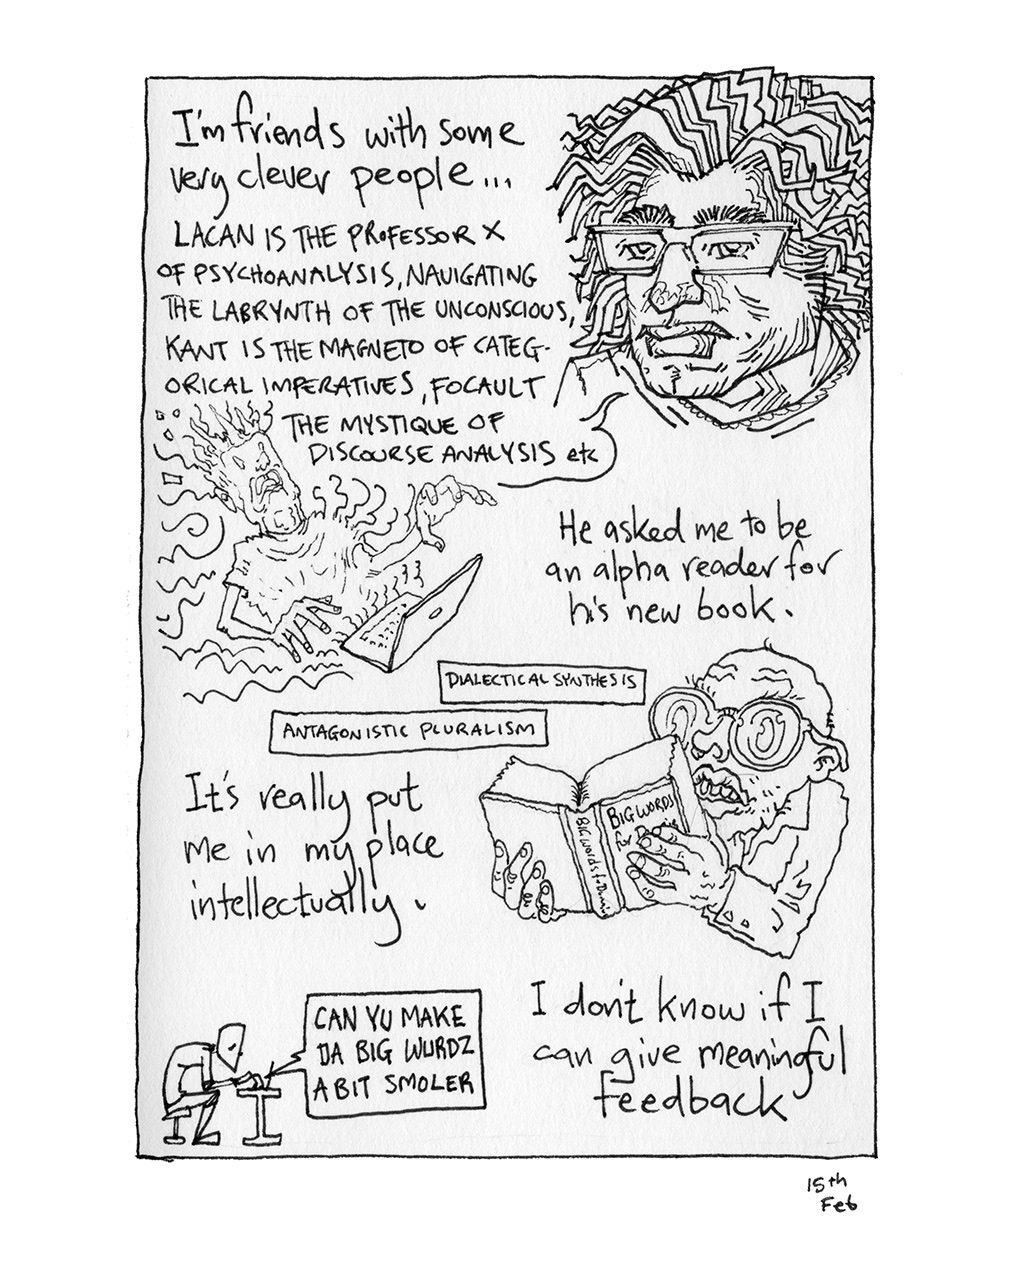 I'm friends with some
very clever people...
LACAN IS THE PROFESSOR X
OF PSYCHOANALYSIS, NAVIGATING
THE LABRYNTH OF THE UNCONSCIOUS,
KANT IS THE MAGNETO OF CATEG-
ORICAL IMPERATIVES, FOCAULT
THE MYSTIQUE OF
DISCOURSE ANALYSIS etc
He asked me to be
an alpha reader for
his new book.
DIALECTICAL SYNTHESIS
ANTAGONISTIC PLURALISM
BIG WORDS
for
BIG Words
It's really put
me in my place
intellectually.
I don't know if I
can give meaningful
feedback
CAN YU MAKE
DA BIG WURDZ
A BIT SMOLER
15th
Feb